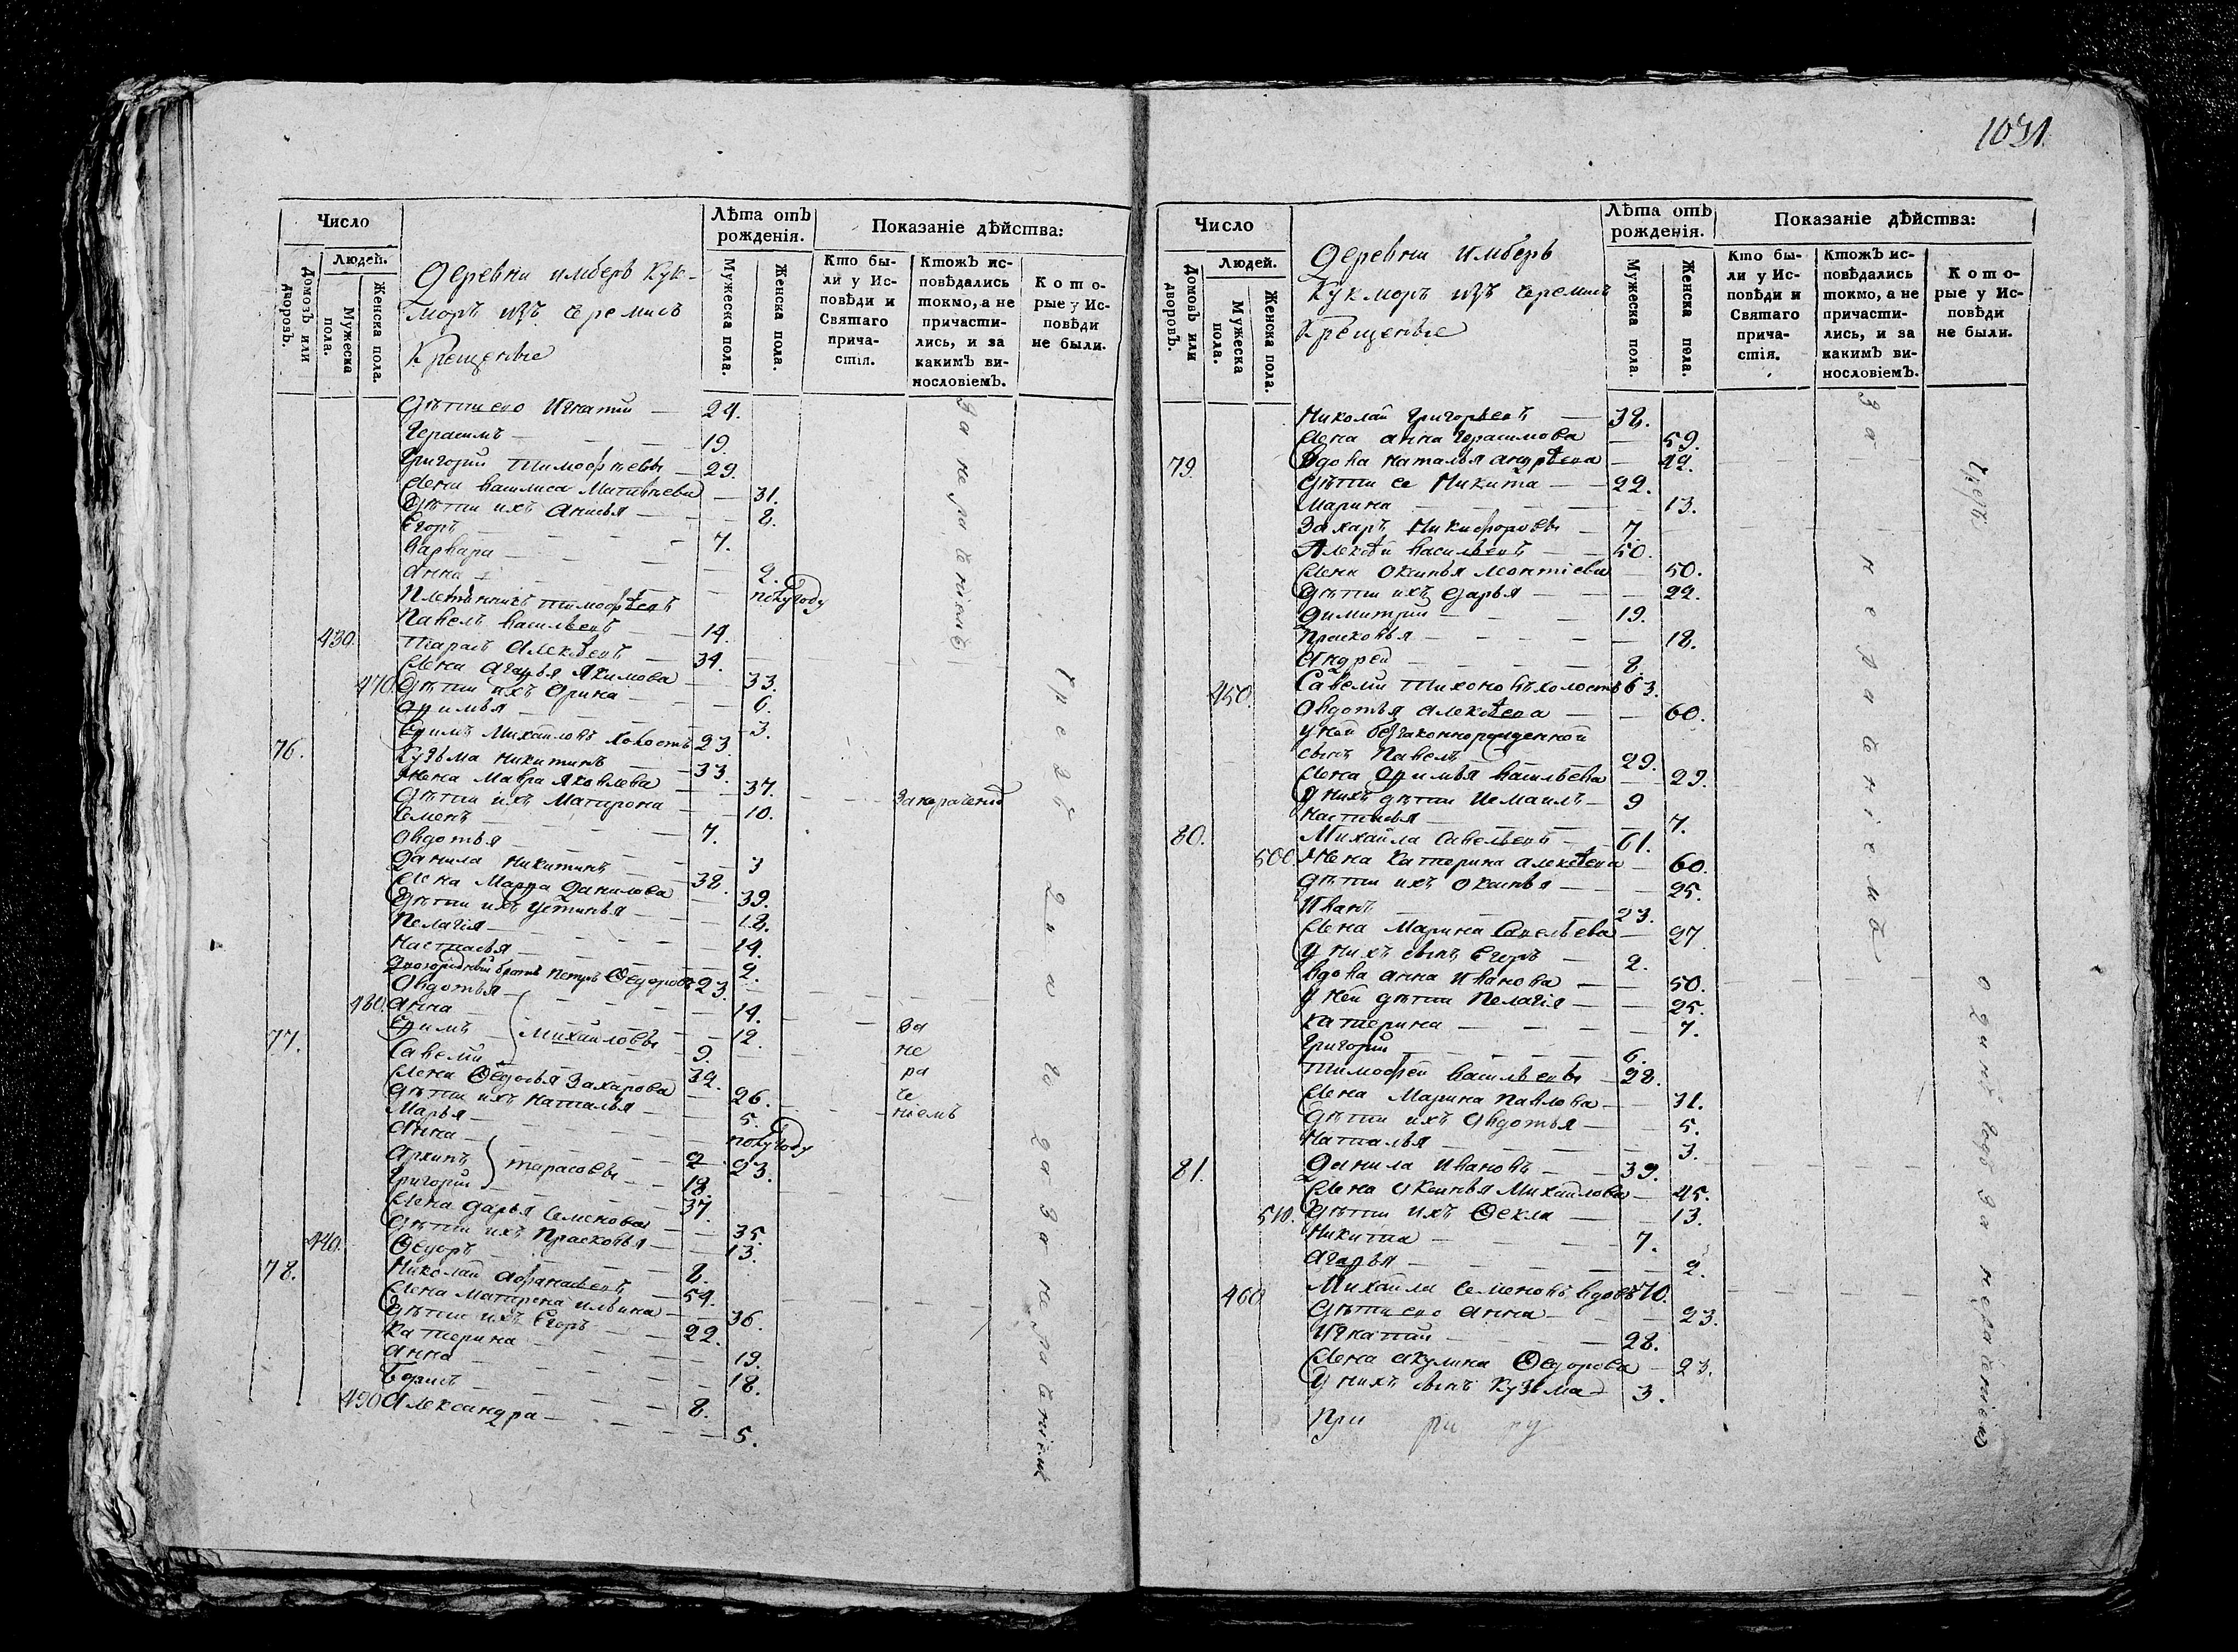 1031
Число
Людей.
Домовъ или дворовъ.
Мужеска пола.
Женска пола.
Деревни имберъ Кук-
моръ изъ черемисъ
Крещеные
Лѣта отъ рожденія.
Мужеска пола.
Женска пола.
Показаніе дѣйства:
Кто были у Исповѣди и Святаго причастія.
Ктожъ исповѣдались токмо, а не причастились, и за какимъ винословіемъ.
Которые у Исповѣди не были.
Дѣтти его Игнатий — 24.
Герасимъ — 19.
Григорий Тимофѣевъ — 29.
Жена Василиса Матвѣева — 31.
Дѣтти ихъ Анисья — 8.
Егоръ — 7.
Варвара — 2.
Анна — полугоду
Племѣнникъ тимофѣевъ
Павелъ Васильевъ — 14.
430. Тарасъ Алексѣевъ — 34.
Жена Агафья Якимова — 33.
470. Дѣтти ихъ Арина — 6.
Афимья — 3.
Ефимъ Михаиловъ холостъ 23.
76. Кузьма Никитинъ — 33.
Жена Мавра Яковлева — 37.
Дѣтти ихъ Матрона — 10. За нерачениѣ
Семенъ — 7.
Авдотья — 3
Данила Никитинъ — 38.
Жена Марфа Данилова — 39.
Дѣтти ихъ Устинья — 18.
Пелагія — 14.
Настасья — 2.
Двоюродный братъ Петръ Ѳедоровъ 23.
Авдотья — 14.
480. Анна — 12.
77. Ефимъ Михаиловы — 9.
Савелий — 32.
Жена Ѳедосья Захарова — 26.
Дѣтти ихъ Наталья — 5.
Марья — полугоду
Анна — 23.
Архипъ Тарасовы — 18.
Григорий — 37.
Жена Дарья Семенова — 35.
Дѣтти ихъ Прасковья — 13.
440. Ѳедоръ — 8.
78. Николай Афанасьевъ — 54.
Жена Матрена Ильина — 36.
Дѣтти ихъ Егоръ — 22.
Катерина — 19.
Анна — 18.
Борисъ — 8.
490 Александра — 5.
За нерачениемъ
За
не
ра
че
ніемъ
Число
Людей.
Домовъ или дворовъ.
Мужеска пола.
Женска пола.
Деревни Имберъ
Кукморъ изъ черемисъ
Крещеные
Лѣта отъ рожденія.
Мужеска пола.
Женска пола.
Показаніе дѣйства:
Кто были у Исповѣди и Святаго причастія.
Ктожъ исповѣдались токмо, а не причастились, и за какимъ винословіемъ.
Которые у Исповѣди не были.
Николай Григорьевъ — 38.
Жена Анна Герасимова — 59.
79. Вдова Наталья Андрѣева — 42.
Дѣтти ее Никита — 22.
Марина — 13.
Захаръ Никифоровъ — 7.
Алексѣй Васильевъ — 50.
Жена Оксинья Леонтіева — 50.
Дѣтти ихъ Дарья — 22.
Димитрий — 19.
Прасковья — 18.
Андрей — 8.
450. Савелий Тихоновъ холостъ 63.
Авдотья Алексѣева — 60.
У ней беззаконнорожденной
сынъ Павелъ — 29.
Жена Афимья Васильева — 29.
У нихъ дѣтти Исмаилъ — 9
Настасья — 7.
80. Михайла Савельевъ — 61.
500. Жена Катерина Алексѣева — 60.
Дѣтти ихъ Оксинья — 25.
Иванъ — 23.
Жена Марина Савельева — 27
У нихъ сынъ Егоръ — 2.
Вдова Анна Иванова — 50.
У ней дѣтти Пелагія — 25.
Катерина — 7.
Григорий — 6.
Тимофей Васильевъ — 28.
Жена Марина Павлова — 31.
Дѣтти ихъ Авдотья — 5.
Наталья — 3.
81. Данила Ивановъ — 39.
Жена Оксинья Михаилова — 45.
510. Дѣтти ихъ Ѳекла — 13.
Никита — 7.
Агафья — 2.
460 Михайла Семеновъ вдовъ 70.
Дѣтти его Анна — 23.
Игнатий — 28.
Жена Акулина Ѳедорова — 23.
У нихъ сынъ Кузьма — 3.
При ри ку
За нерачениемъ
Чрезъ одинъ годъ за нерачениемъ